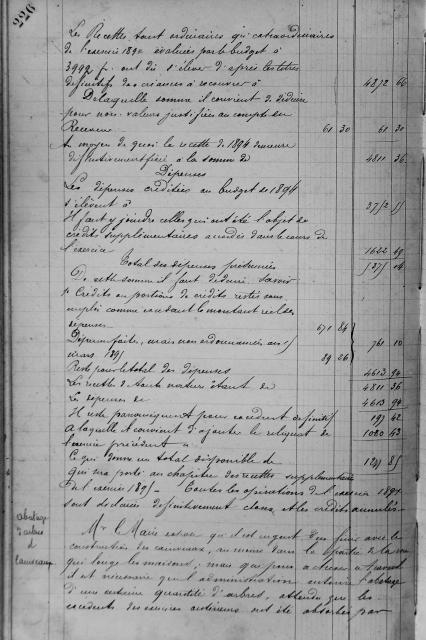 226
Les Recettes tant ordinaires qu'extraordinaires
de l'exercice 1894 évaluées par le budget à
3992 f. ont dû s'élever d'après les titres
définitifs des créances à recouvrer à 4872 66
De laquelle somme il convient de déduire
pour non-valeurs justifiées au compte du
Receveur 61 30 61 30
Au moyen de quoi la recette de 1894 demeure
définitivement fixée à la somme de 4811 36
Dépenses
Les dépenses créditées au budget de 1894
s'élèvent à
Il faut y joindre celles qui ont été l'objet de
crédits supplémentaires accordés dans le cours de
l'exercice 1622 49
Total des dépenses présumées
De cette somme il faut déduire Savoir
1° Crédits ou portions de crédits restés sans
emploi comme excédant le montant réel des
dépenses 671 84
Dépenses faites, mais non ordonnancées au 15
mars 1895 89 26 761 10
Reste pour le total des dépenses 4613 94
Les recettes de toute nature étant de 4811 36
Les dépenses de 4613 94
Il reste par conséquent pour excédent définitif 197 42
A laquelle il convient d'ajouter le reliquat de
l'année précédente à 1020 43
Ce qui donne un total disponible de 1217 85
qui sera porté au chapitre des recettes supplémentaires
de l'exercice 1895. Toutes les opérations de l'exercice 1894
sont déclarées définitivement closes et les crédits annulés.
abatage
d'arbres
et
Caniveaux
Mr le Maire expose qu'il est urgent d'en finir avec la
construction des caniveaux, au moins dans la partie de la rue
qui longe les maisons; mais que pour achever ce travail
il est nécessaire que l'administration autorise l'abatage
d'une certaine quantité d'arbres, attendu que les
excédents des exercices antérieurs ont été absorbés par